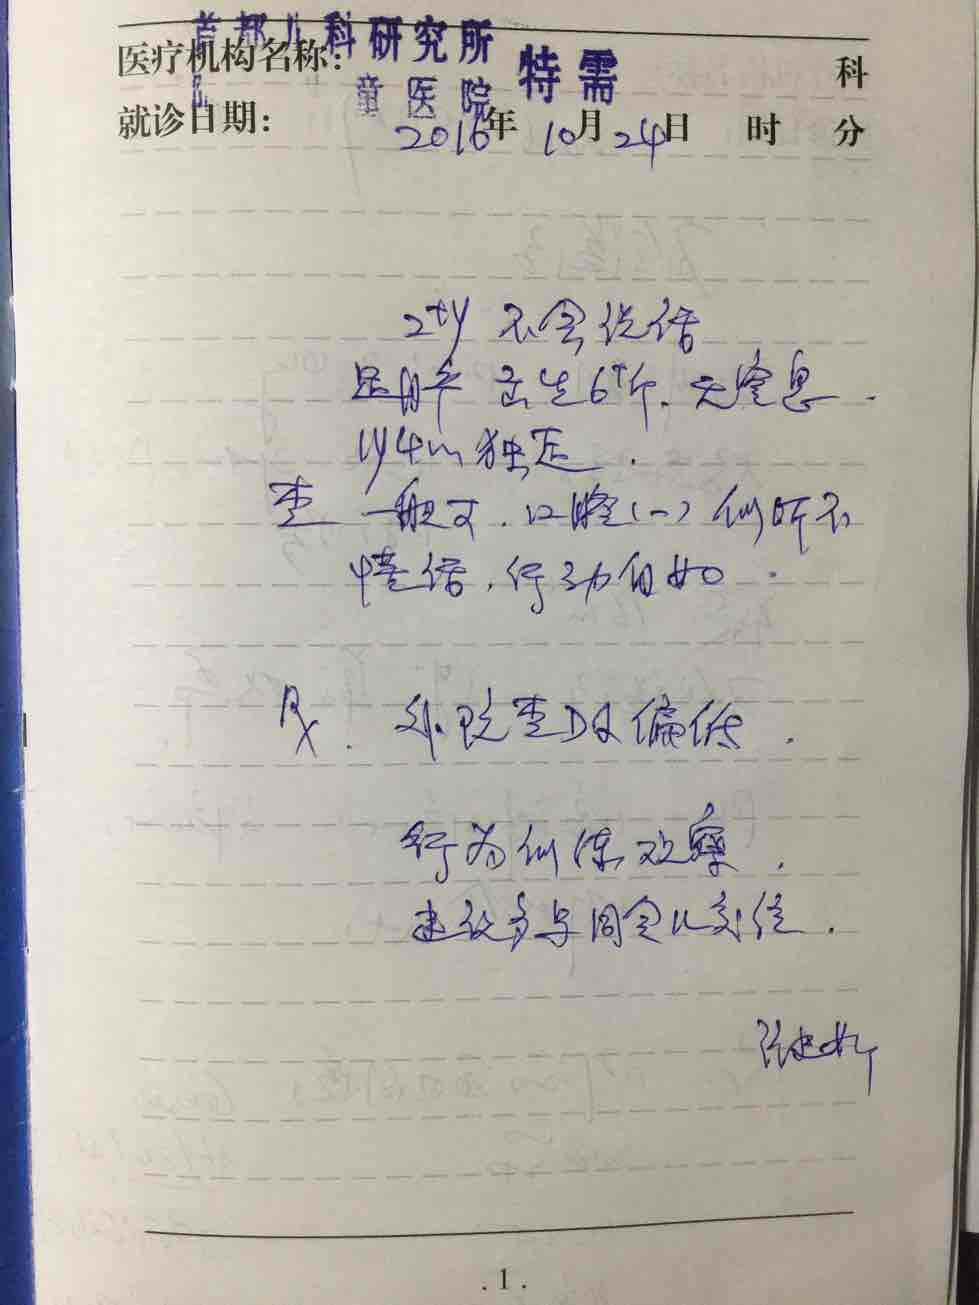 首都儿科研究所
医疗机构名称： 特需 科
童医院
就诊日期： 2016年 10月24日 时 分
2⁺y 不会说话
足月平 出生6⁺斤. 无窒息.
1y4m 独走.
查 一般可. 口腔(-) 似听不
懂话. 行动自如.
Rx. 外院查DQ偏低.
行为训练 观察.
建议多与同龄儿交往.
. 1 .